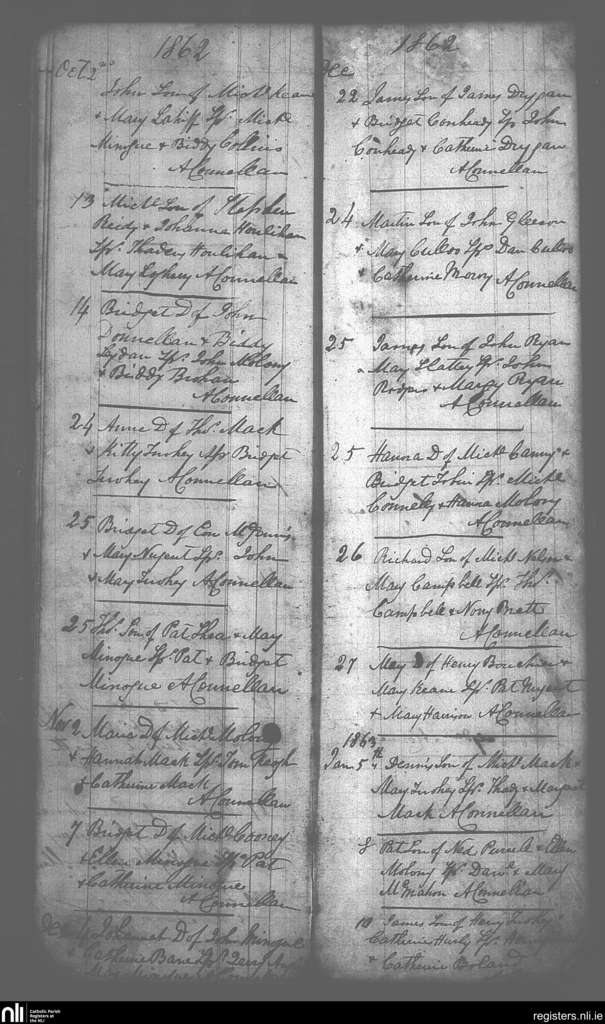 1862
Oct 2nd
John Son of Mich Keane
& Mary Lahiff Sps Mich
Minogue & Biddy Collins
A Connellan
13 Mich Son of Stephen
Reidy & Johanna Houlihan
Sps Thadeus Houlihan &
May A Connellan
14 Bridget D of John
Donnellan & Biddy
Lydan Sps John Molony
& Biddy Brohan
A Connellan
24 Anne D of Thos Mack
& Kitty Tuohey Sps Bridget
Tuohey A Connellan
25 Bridget D of Con
& May Nugent Sps John
& May Tuohey A Connellan
25 Thos Son of Pat Shea & May
Minogue Sps Pat & Bridget
Minogue A Connellan
Nov 2 Maria D of Mich Molony
& Hannah Mack Sps Tom Keogh
& Catherine Mack
A Connellan
7 Bridget D of Mich Cooney
& Ellen Minogue Sps Pat
& Catherine Minogue
A Connellan
Dec D of John Minogue
& Catherine Sps
1862
Dec
22 James Son of James Duggan
& Bridget Conheady Sps John
Conheady & Catherine Duggan
A Connellan
24 Martin Son of John Gleeson
& May Culloo Sps Dan Culloo
& Catherine A Connellan
25 James Son of John Ryan
& May Slattey Sps John
Rodgers & Margy Ryan
A Connellan
25 Hanora D of Mich Canny &
Bridget Tobin Sps Mich
Connelly & Hanna Molony
A Connellan
26 Richard Son of Mich &
May Campbell Sps Thos
Campbell & Nony Brett
A Connellan
27 May D of Henry Bourchier &
Mary Keane Sps Pat Nugent
& May Harrison A Connellan
1863
Jan 5th Dennis Son of Mich Mack &
May Tuohey Sps Thady & Margaret
Mack A Connellan
8 Pat Son of Ned Purcell & Ellen
Molony Sps Danl & May
McMahon A Connellan
10 James Son of Henry Tuohey &
Catherine Hurly Sps Henry
& Catherine Boland
nli
Catholic Parish
Registers at
the NLI
registers.nli.ie